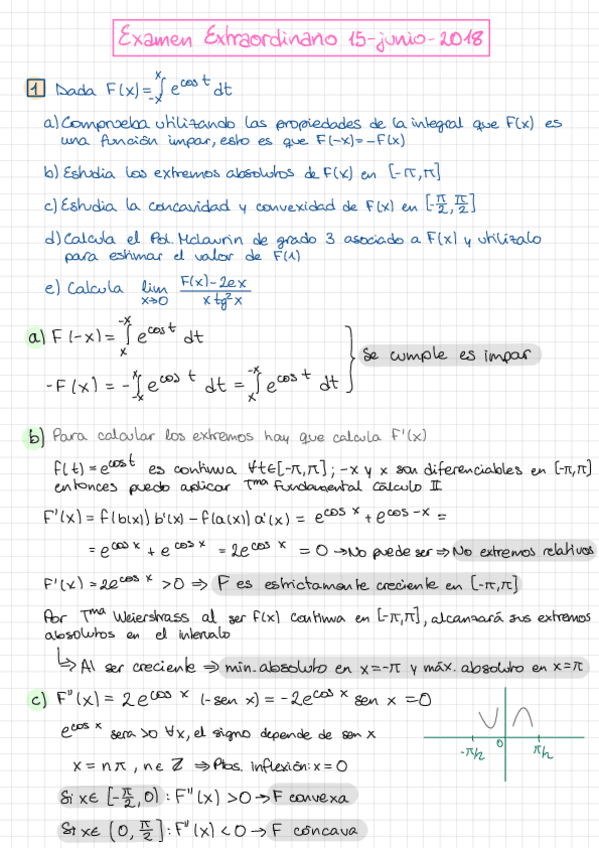 Examen Extraordinario 15-junio-2018
1 Dada F(x)=∫_{-x}^{x} e^{cos t} dt
a) Comprueba utilizando las propiedades de la integral que F(x) es
una función impar, esto es que F(-x)=-F(x)
b) Estudia los extremos absolutos de F(x) en [-π,π]
c) Estudia la concavidad y convexidad de F(x) en [-π/2,π/2]
d) Calcula el Pol. Mclaurin de grado 3 asociado a F(x) y utilízalo
para estimar el valor de F(1)
e) Calcula lim_{x→0} (F(x)-2ex)/(x tg²x)
a) F(-x)=∫_{x}^{-x} e^{cos t} dt
-F(x)=-∫_{-x}^{x} e^{cos t} dt = ∫_{x}^{-x} e^{cos t} dt } Se cumple es impar
b) Para calcular los extremos hay que calcula F'(x)
f(t)=e^{cos t} es continua ∀t∈[-π,π]; -x y x son diferenciables en [-π,π]
entonces puedo aplicar Tma Fundamental Cálculo II
F'(x)=f(b(x))b'(x)-f(a(x))a'(x)=e^{cos x}+e^{cos -x}=
=e^{cos x}+e^{cos x}=2e^{cos x}=0→No puede ser⇒No extremos relativos
F'(x)=2e^{cos x}>0⇒F es estrictamente creciente en [-π,π]
Por Tma Weierstrass al ser F(x) continua en [-π,π], alcanzará sus extremos
absolutos en el intervalo
↳Al ser creciente⇒min. absoluto en x=-π y máx. absoluto en x=π
c) F''(x)=2e^{cos x}(-sen x)=-2e^{cos x} sen x=0
e^{cos x} sera >0 ∀x, el signo depende de sen x
-π/2 0 π/2
x=nπ, n∈Z⇒Ptos. inflexión: x=0
Si x∈[-π/2,0): F''(x)>0→F convexa
Si x∈(0,π/2]: F''(x)<0→F cóncava